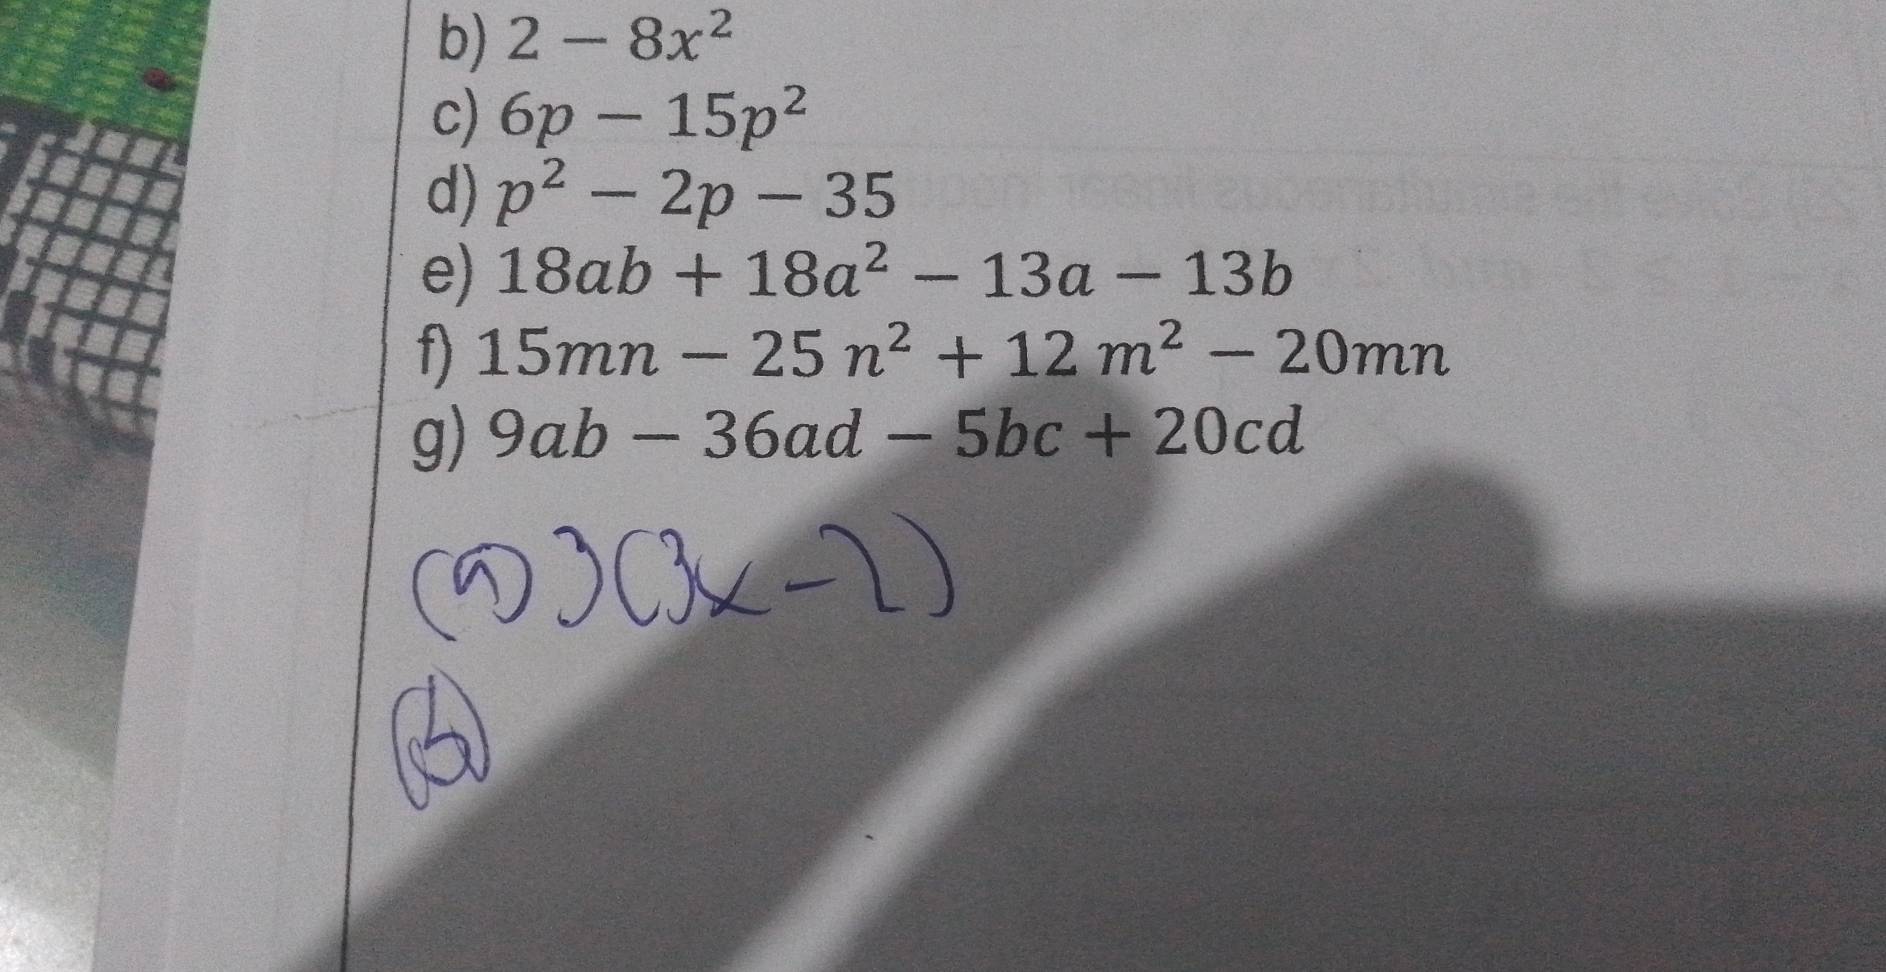 b) 2 − 8x²
c) 6p − 15p²
d) p² − 2p − 35
e) 18ab + 18a² − 13a − 13b
f) 15mn − 25 n² + 12 m² − 20mn
g) 9ab − 36ad − 5bc + 20cd
(a) 3(3x-2)
(b)